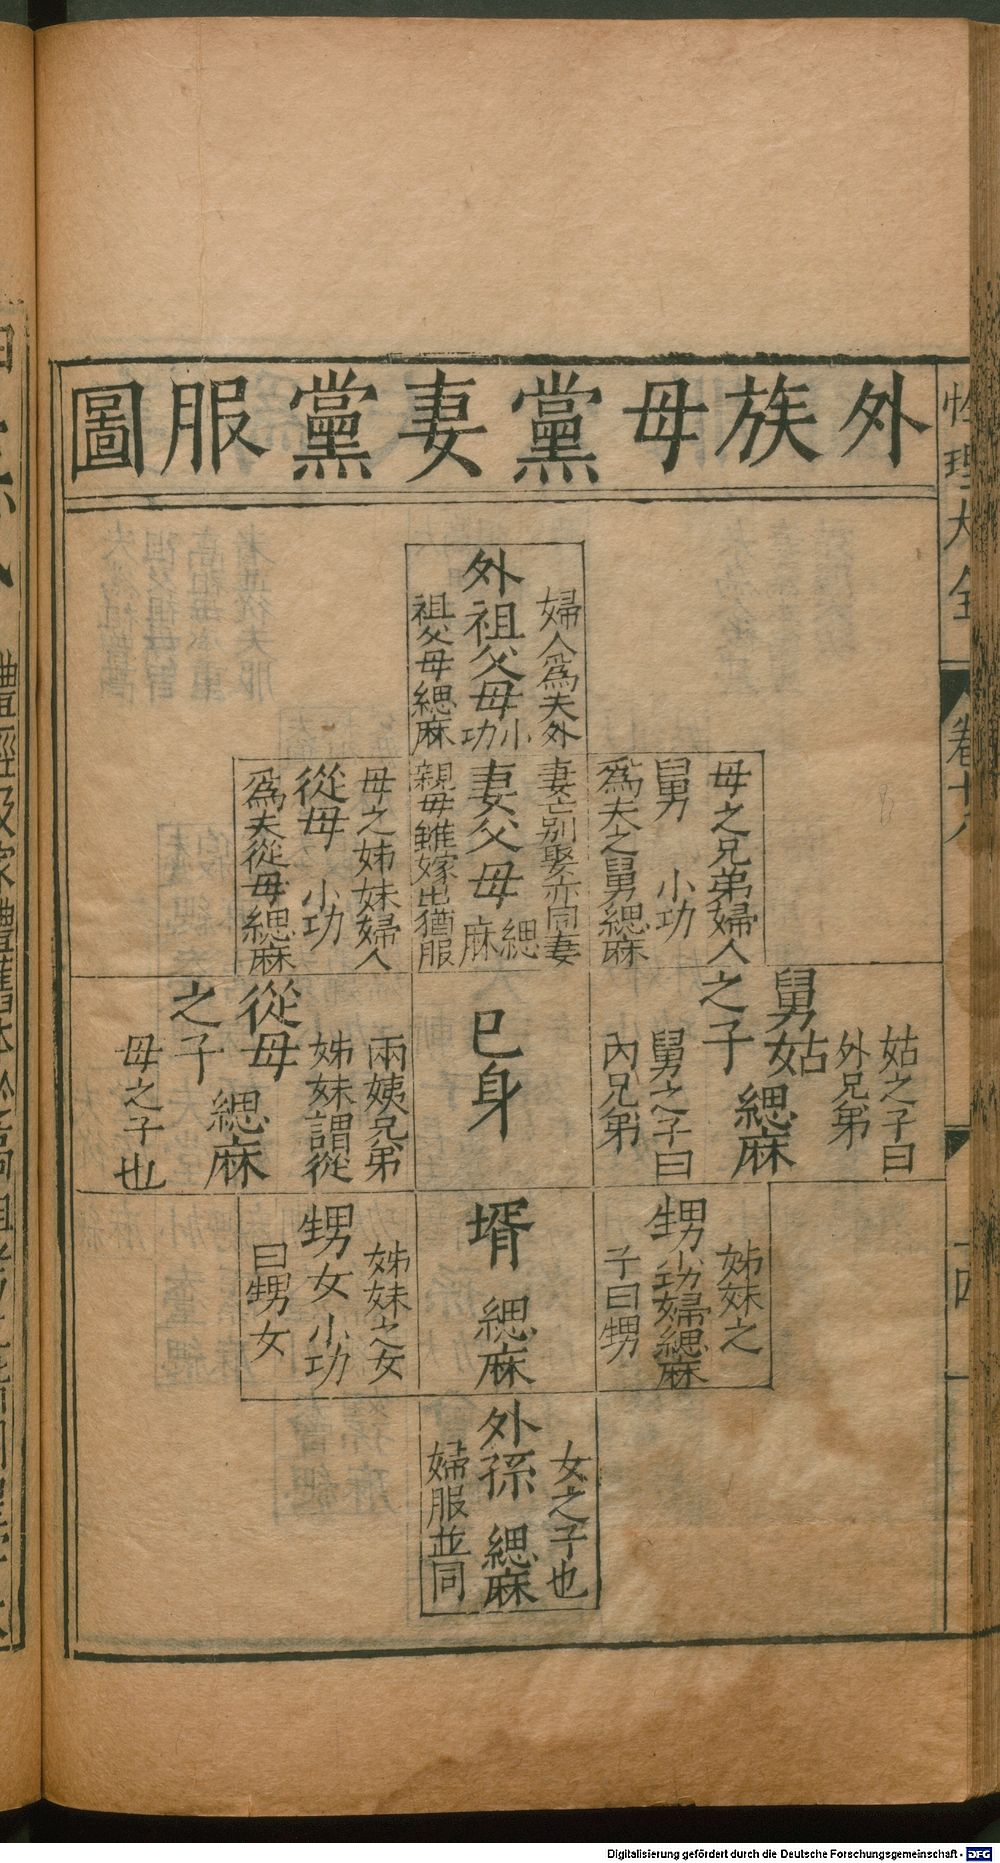 外族母黨妻黨服圖
婦人爲夫外
外祖父母小功
祖父母緦麻
母之兄弟婦人
舅 小功
爲夫之舅緦麻
妻亡別娶亦同妻
妻父母緦麻
親母雖嫁出猶服
母之姊妹婦人
從母 小功
爲夫從母緦麻
姑之子曰
外兄弟
舅姑
之子
緦麻
舅之子曰
內兄弟
已身
兩姨兄弟
姊妹謂從
從母
之子
緦麻
母之子也
姊妹之
甥小功婦緦麻
子曰甥
壻 緦麻
姊妹之女
甥女小功
曰甥女
女之子也
外孫 緦麻
婦服並同
性理大全
卷十八
十四
Digitalisierung gefördert durch die Deutsche Forschungsgemeinschaft - DFG